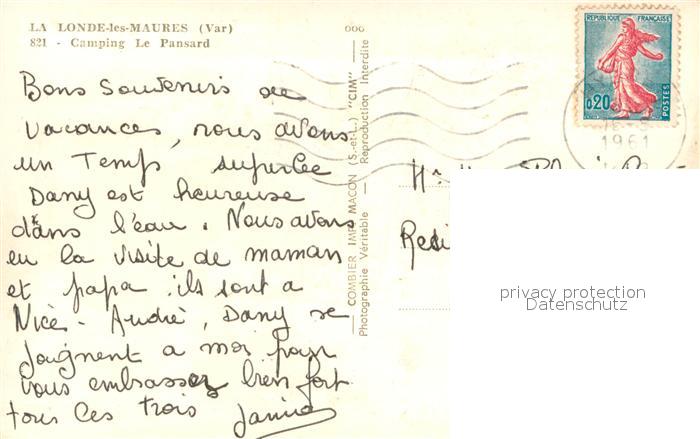 LA LONDE-les-MAURES (Var)
821 - Camping Le Pansard
Bons Souvenirs de
vacances, nous avons
un Temps superbe
Dany est heureuse
dans l'eau. Nous avons
eu la visite de maman
et papa ils sont a
Nice. André, Dany se
joignent a moi pour
vous embrasser bien fort
tous les trois Janine
000
COMBIER IMP. MACON (S.-et-L.) "CIM"
Photographie Véritable - Reproduction Interdite
REPUBLIQUE FRANÇAISE
0,20
POSTES
1961
Resi
privacy protection
Datenschutz